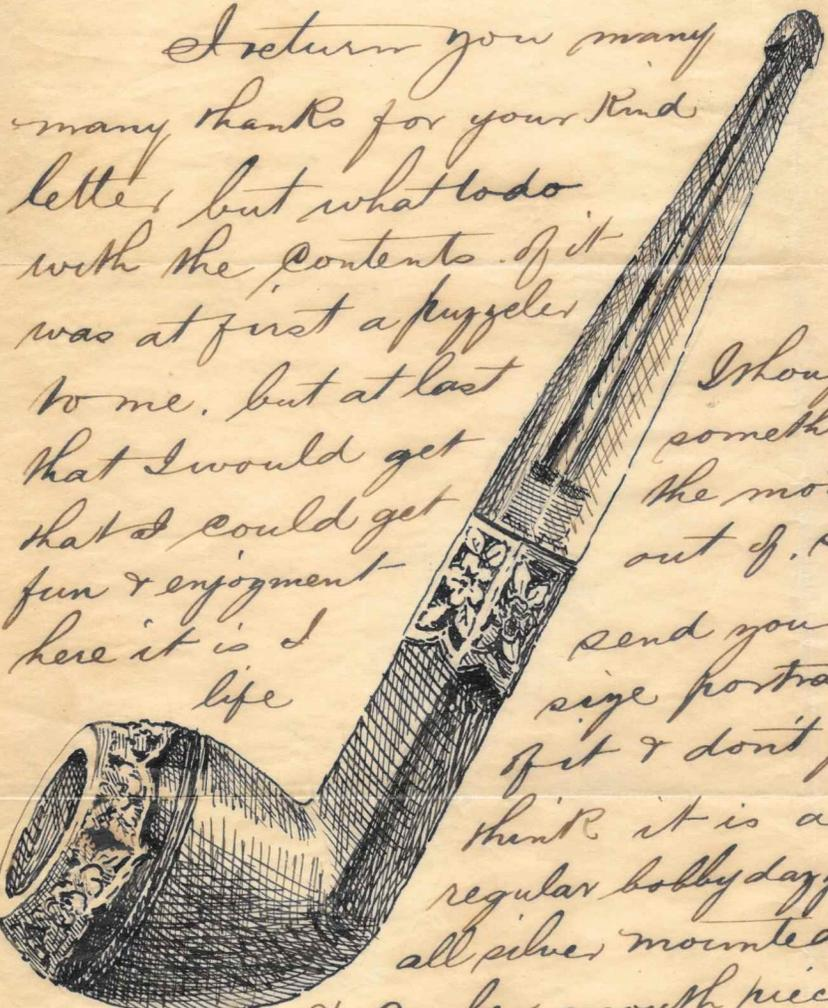 I return you many
many thanks for your kind
letter but what to do
with the contents of it
was at first a puzzeler
to me. but at last I thou
that I would get someth
that I could get the mo
fun & enjoyment out of.
here it is I send you
life size portra
of it & don't
think it is a
regular bobby dazz
all silver mounted
mouth piec